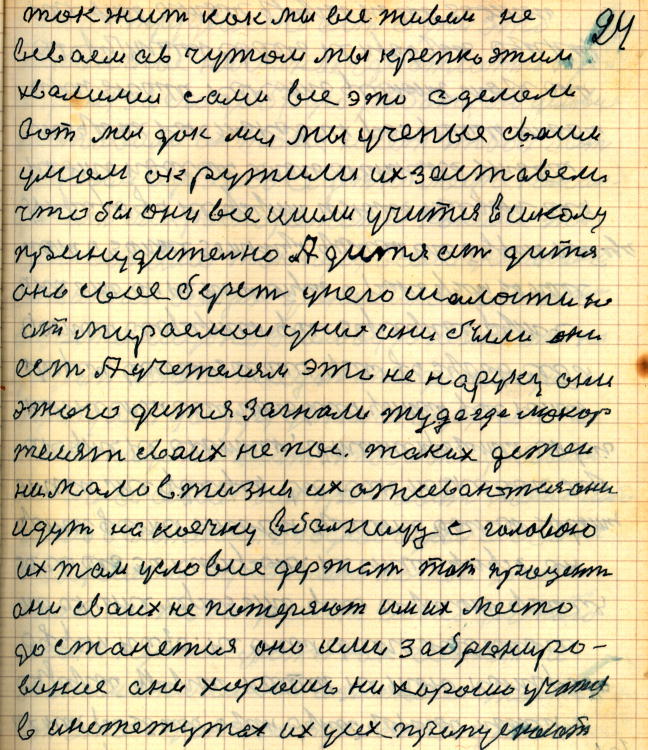 24
ток жит как мы все живем не
в чужом мы крепко этим
хвалимся сами все это сделоли
вот мы док мы ученые своим
умом окружили их заставем
чтобы они все шли учится в школу
принудително А дитя ест дитя
оно свое берет у него шалости не
от мираемои у ние они были они
ест А учетелям эти не на руку они
этого дитя загнали туда где мокор
телят своих не пос. таких детеи
нимало в жизни их они
идут на коечку в болницу с головою
их там условие держат тот процент
они своих не потеряют им их место
достанетия оно ими заброниро-
вание они хорошо ни хорошо учатся
в инстетутах их усех пропускают